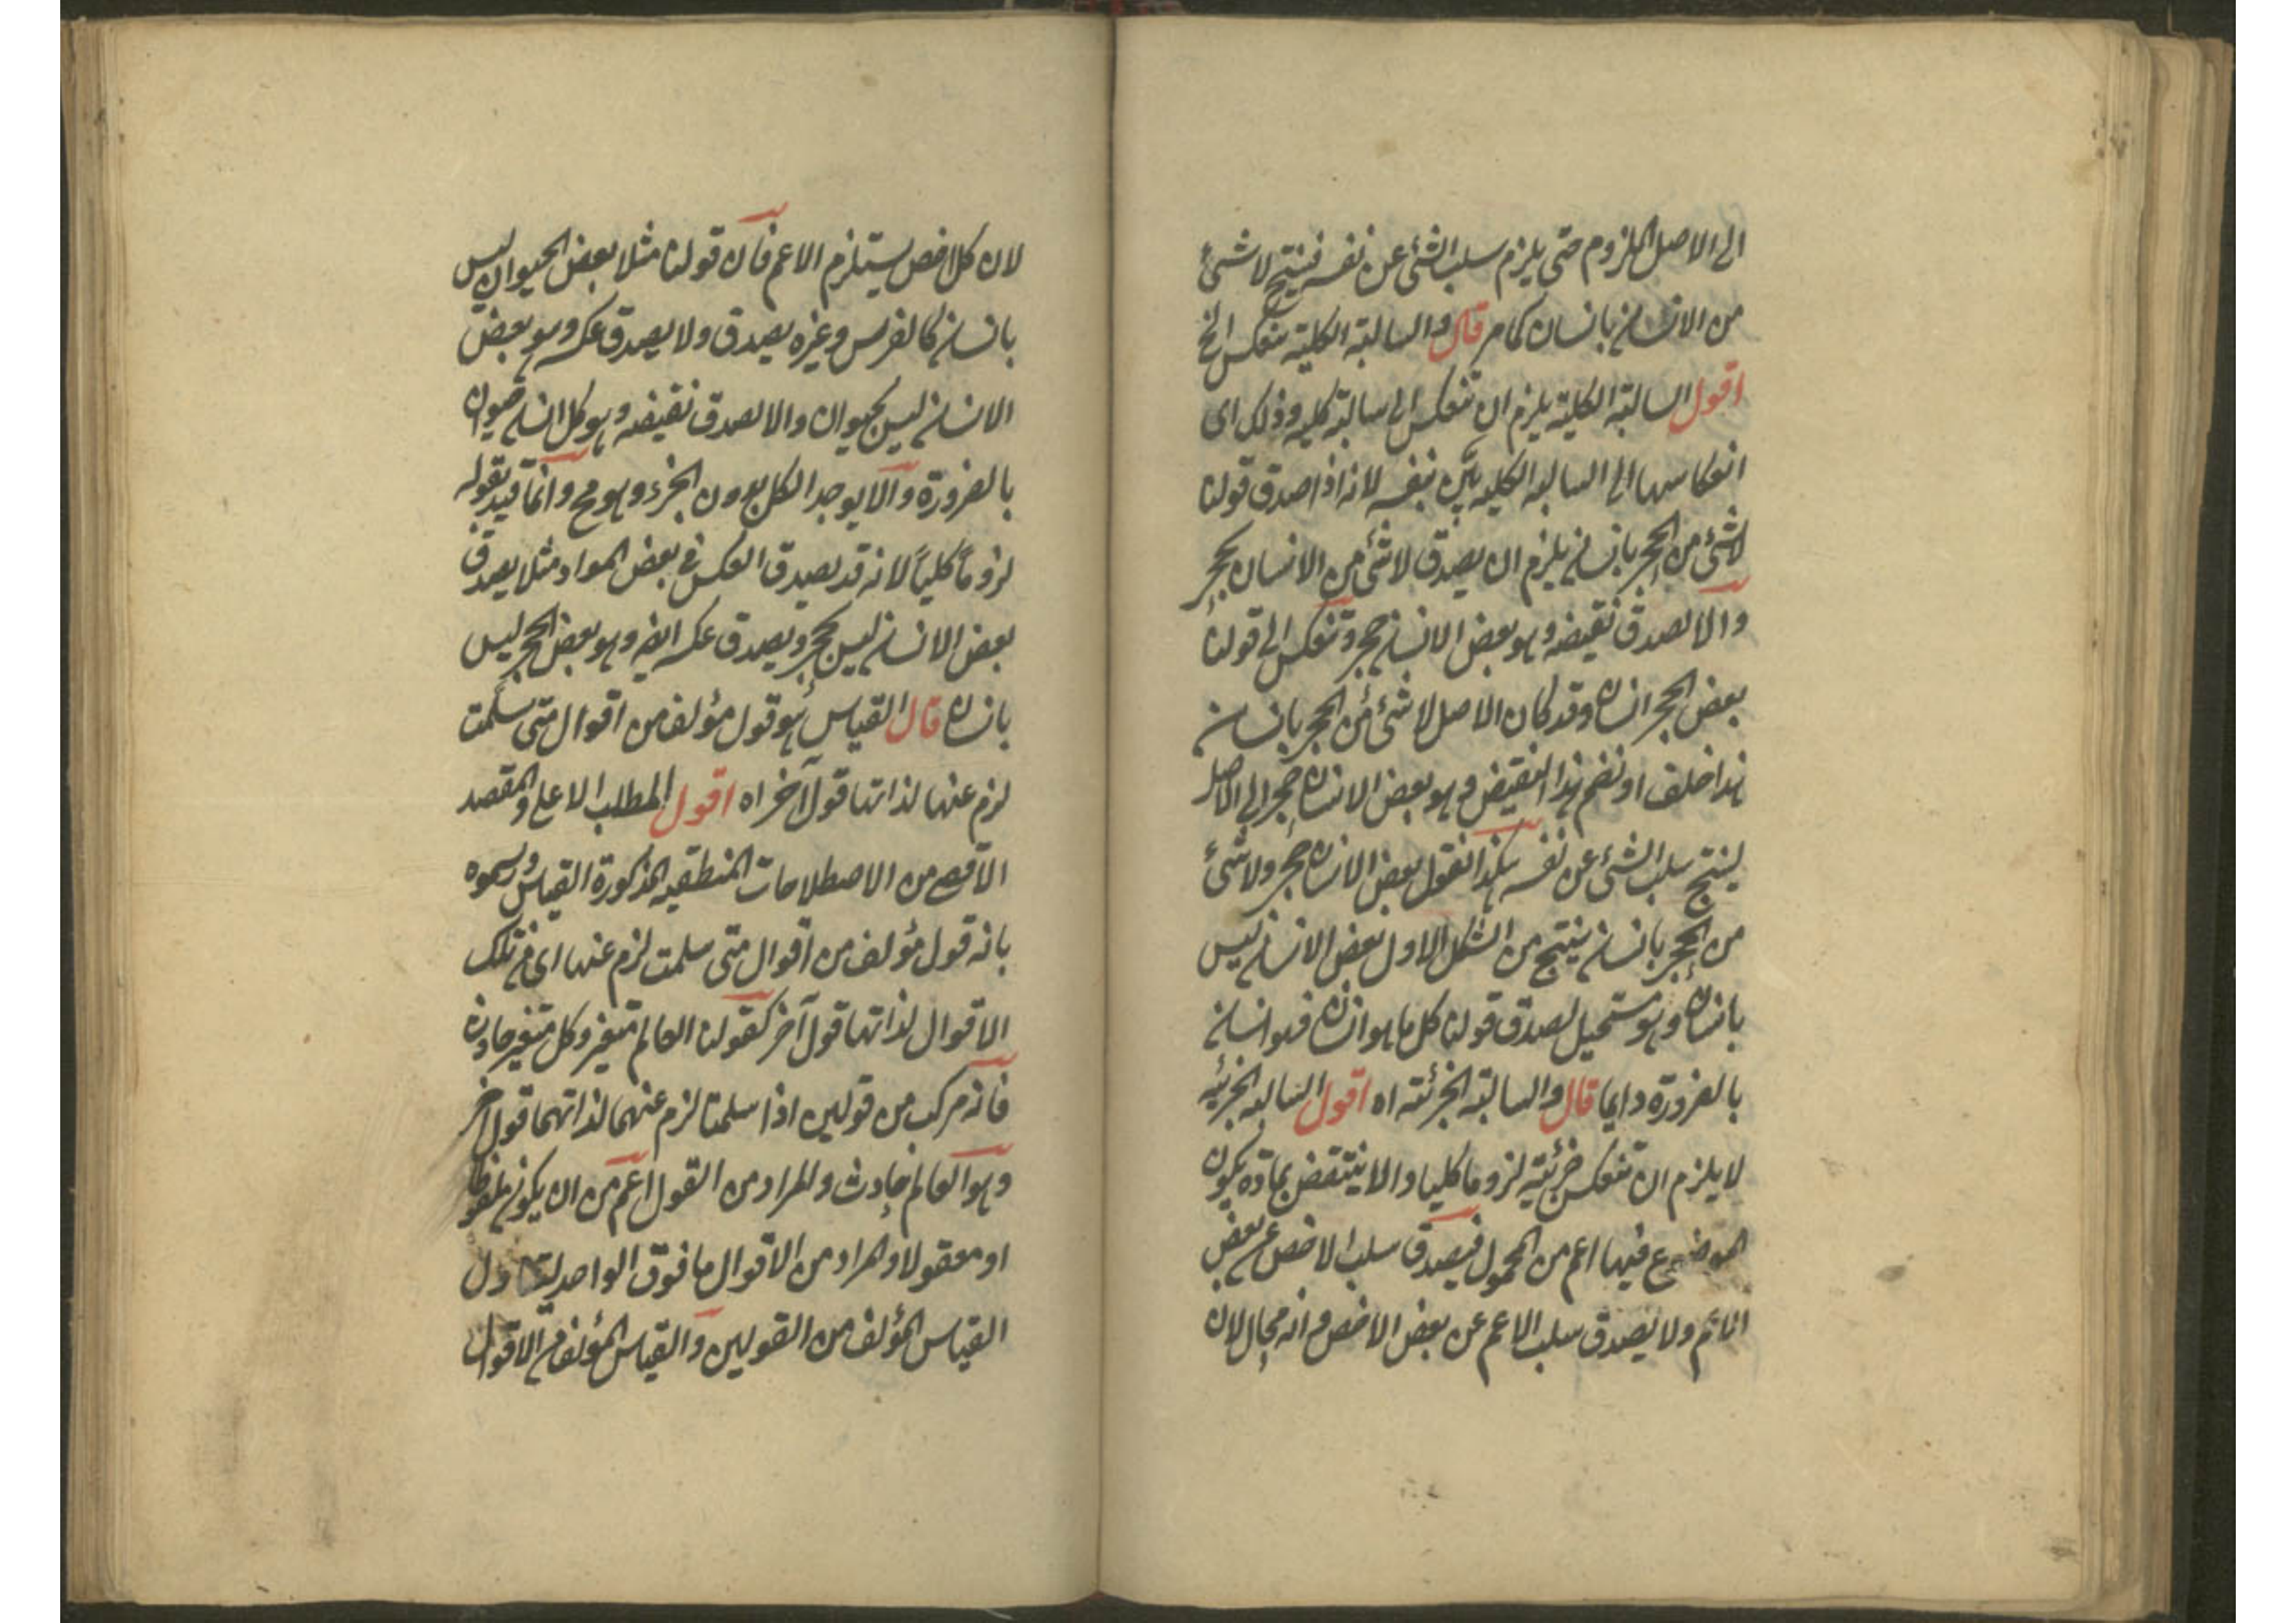 الى الاصل الملزوم حتى يلزم سلب الشئ عن نفسه فينتج لا شئ
من الانسان بانسان كما مر قال والسالبة الكلية تنعكس الخ
اقول السالبة الكلية يلزم ان تنعكس الى سالبة كلية وذلك اى
انعكاسها الى السالبة الكلية بيّن بنفسه لانه اذا صدق قولنا
لا شئ من الحجر بانسان يلزم ان يصدق لا شئ من الانسان بحجر
والا لصدق نقيضه وهو بعض الانسان حجر وتنعكس الى قولنا
بعض الحجر انسان وقد كان الاصل لا شئ من الحجر بانسان
هذا خلف او نضم هذا النقيض وهو بعض الانسان حجر الى الاصل
لينتج سلب الشئ عن نفسه هكذا نقول بعض الانسان حجر ولا شئ
من الحجر بانسان ينتج من الشكل الاول بعض الانسان ليس
بانسان وهو مستحيل لصدق قولنا كل ما هو انسان فهو انسان
بالضرورة دايما قال والسالبة الجزئية اه اقول السالبة الجزئية
لا يلزم ان تنعكس جزئية لزوما كليا والا ينتقض بمادة يكون
الموضوع فيها اعم من المحمول فيصدق سلب الاخص عن بعض
الاعم ولا يصدق سلب الاعم عن بعض الاخص فانه محال لان
لان كل اخص يستلزم الاعم فان قولنا مثلا بعض الحيوان ليس
بانسان كالفرس وغيره يصدق ولا يصدق عكسه وهو بعض
الانسان ليس بحيوان والا لصدق نقيضه وهو كل انسان حيوان
بالضرورة والا يوجد الكل بدون الجزء وهو مح وانما قيد بقوله
لزوماً كلياً لانه قد يصدق العكس في بعض المواد مثلا يصدق
بعض الانسان ليس بحجر ويصدق عكسه ايضا وهو بعض الحجر ليس
بانسان قال القياس هو قول مؤلف من اقوال متى سلمت
لزم عنها لذاتها قول آخر اه اقول المطلب الاعلى والمقصد
الاقصى من الاصطلاحات المنطقية المذكورة القياس ورسموه
بانه قول مؤلف من اقوال متى سلمت لزم عنها اى من تلك
الاقوال لذاتها قول آخر كقولنا العالم متغير وكل متغير حادث
فانه مركب من قولين اذا سلمتا لزم عنهما لذاتهما قول آخر
وهو العالم حادث والمراد من القول اعم من ان يكون ملفوظا
او معقولا والمراد من الاقوال ما فوق الواحد ليتناول
القياس المؤلف من القولين والقياس المؤلف من الاقوال